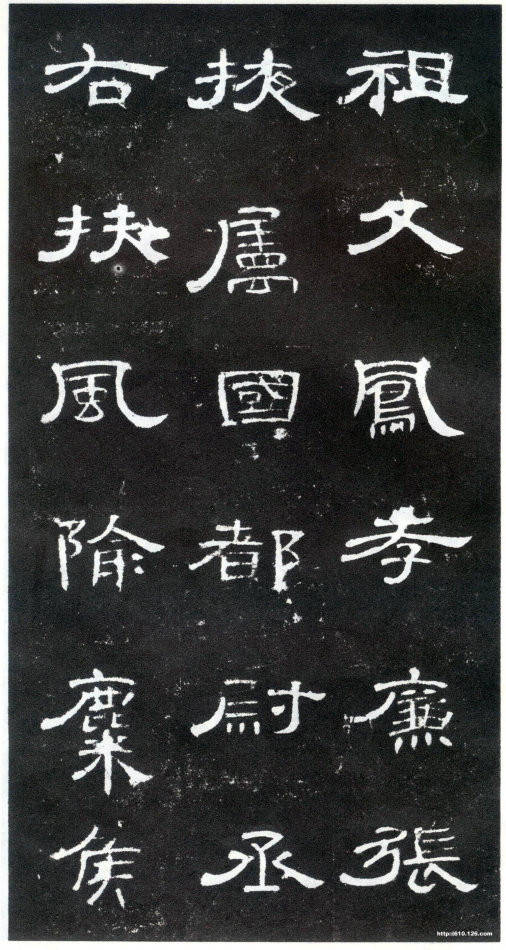 祖父鳳孝廉張
掖屬國都尉丞
右扶風隃麋侯
http://610.126.com